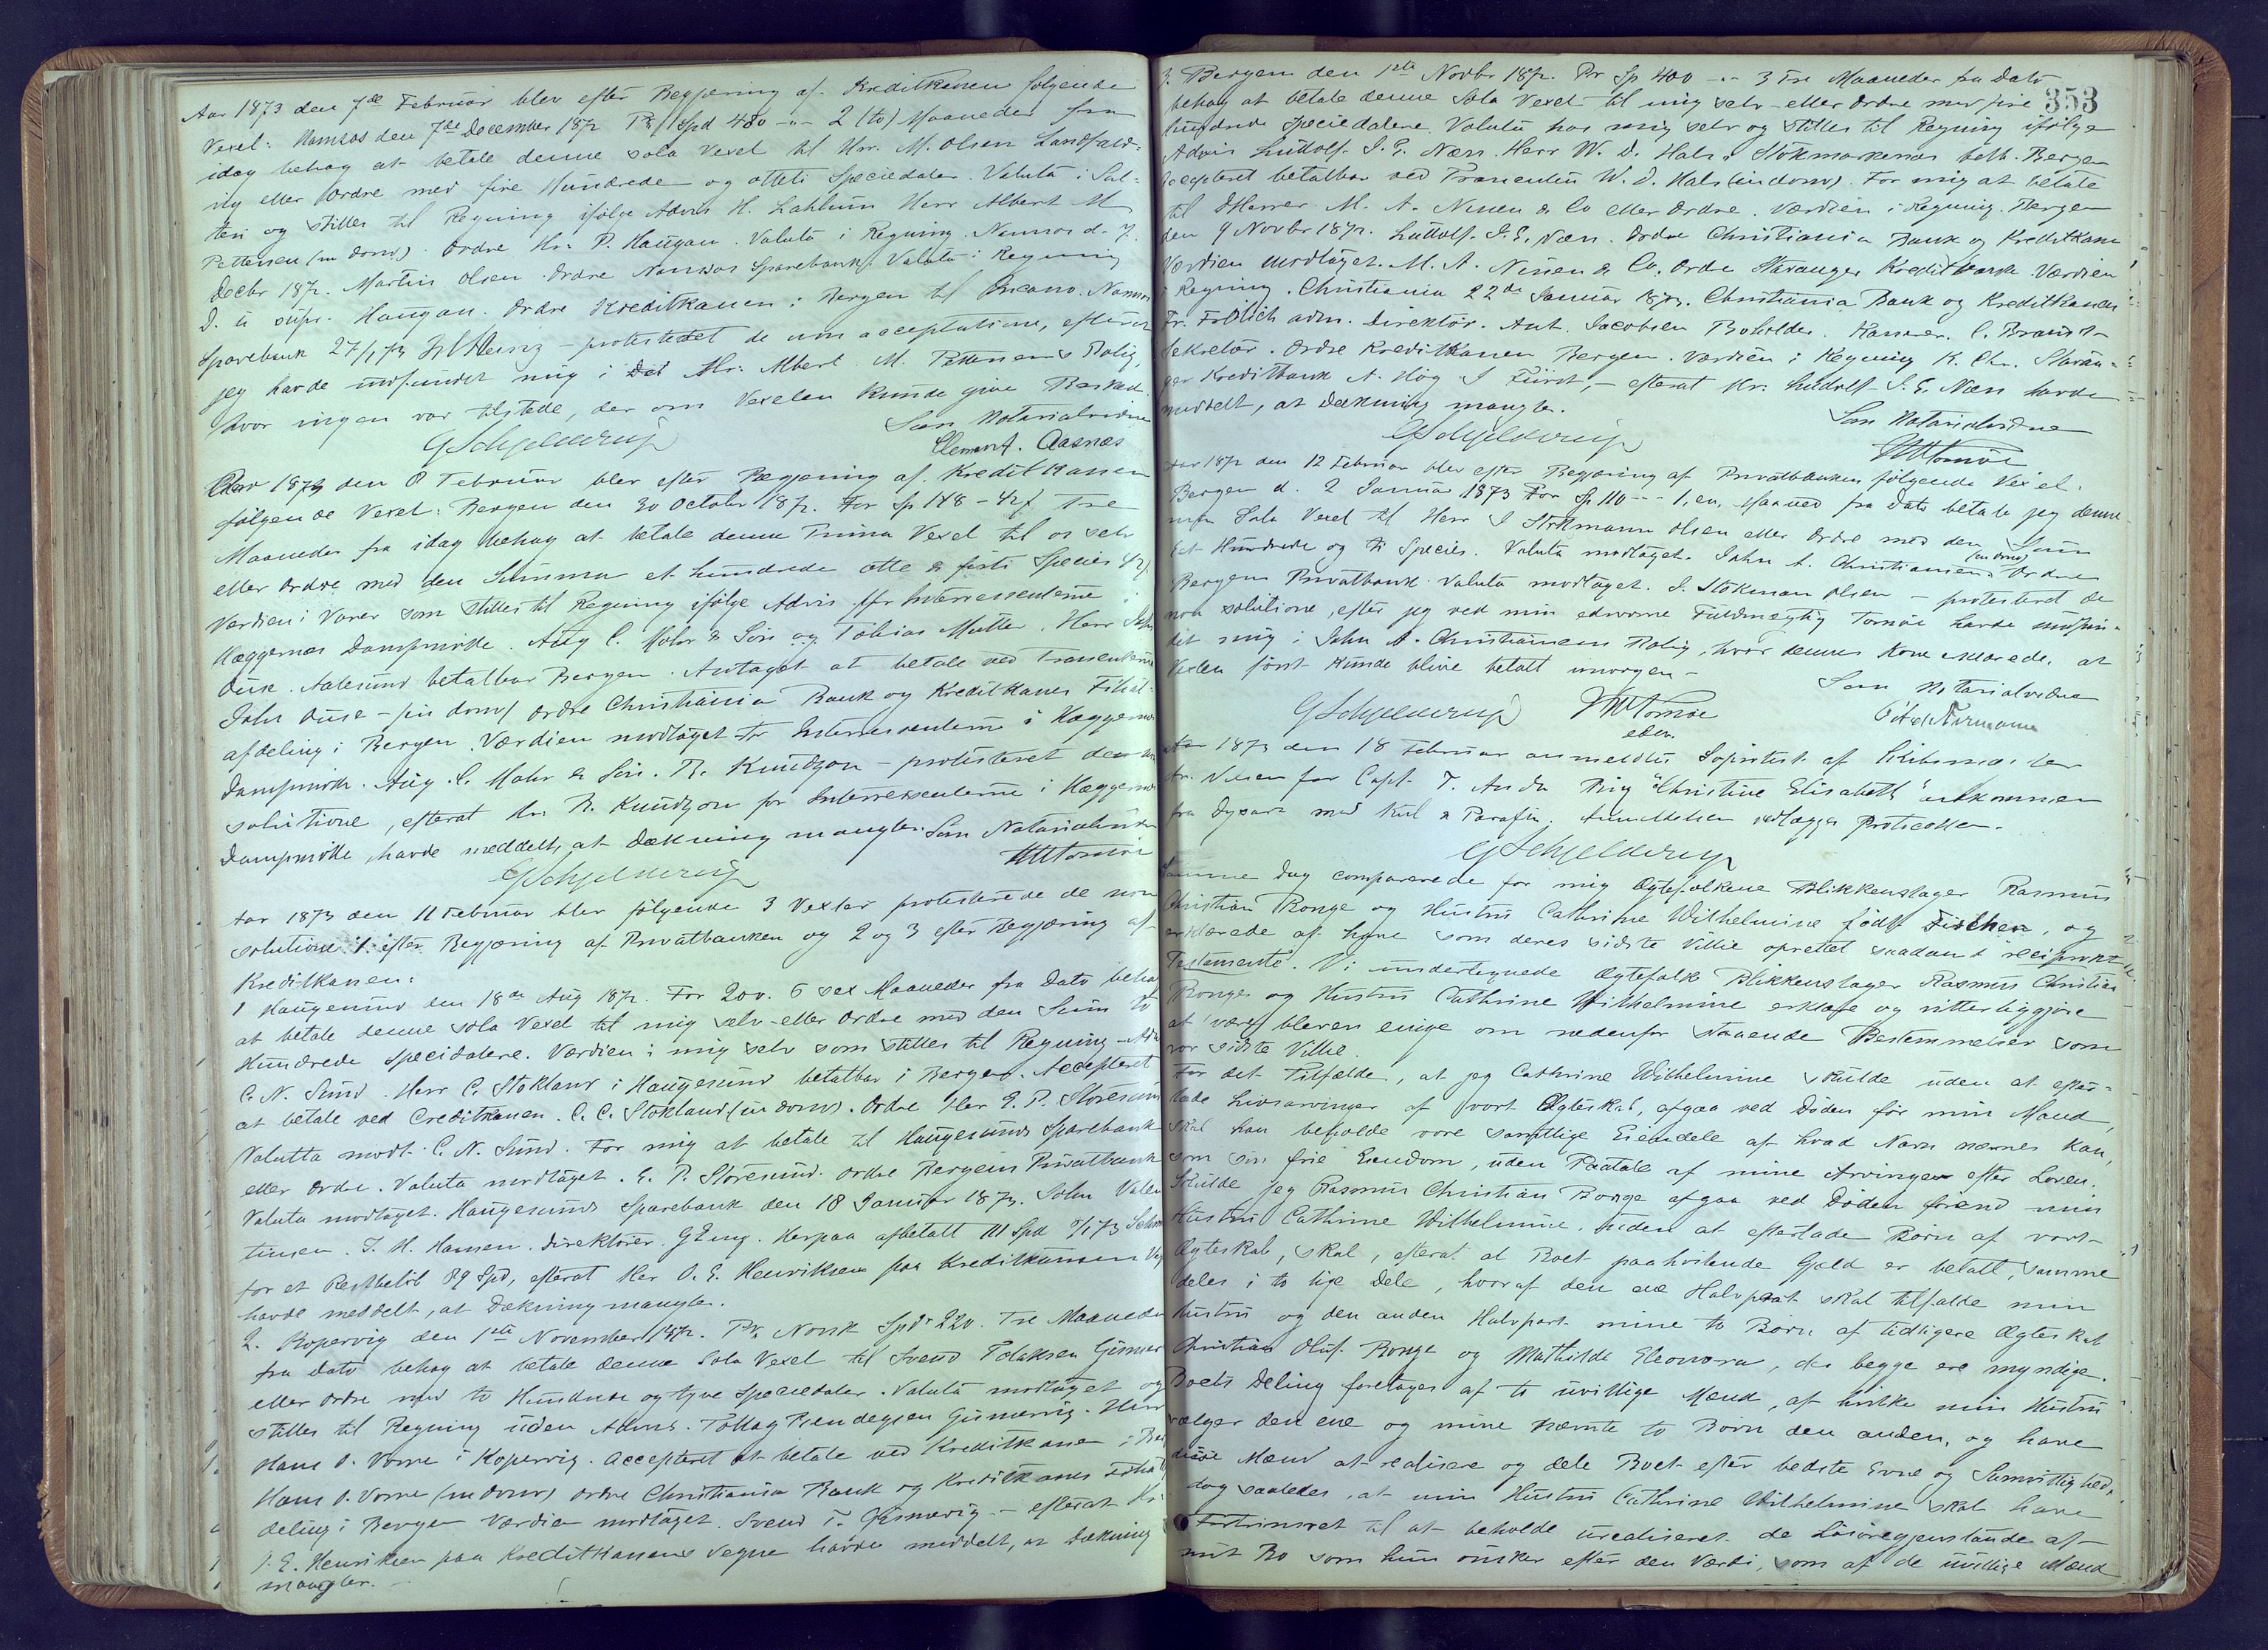 Aar 1873 den 7de Februar blev efter Begjæring af Kreditkassen følgende
Vexel: Namsos den 7de December 1872 Pr Spd 480 -"- 2 (to) Maaneder fra
idag behag at betale denne sola Vexel til Hrr. M. Olsen Landfald-
vig eller Ordre med fire Hundrede og otteti Speciedaler. Valuta i
og stilles til Regning ifølge Advis H. Lahlum Herr Albert M
Pettersen (in dorso). Ordre Hr. P. Haugan. Valuta i Regning. Namsos d. 7
Decbr 1872. Martin Olsen. Ordre Namsos Sparebank. Valuta i Regning
D. u supr. Haugan. Ordre Kreditkassen i Bergen til Incasso. Namsos
Sparebank 27/1 73 - protestedet de non acceptatione, efterat
jeg havde indfundet mig i Det Hr. Albert M. Pettersens Bolig,
hvor ingen var tilstede, der om Vexelen kunde give Besked.
Som Notarialvidne
GSchjelderup Clement. Aasnæs
Aar 1873 den 8 Februar blev efter Begjæring af Kreditkassen
følgende Vexel: Bergen den 30 October 1872. For Sp 148 - 42 f Tre
Maaneder fra idag behag at betale denne Prima Vexel til os selv
eller Ordre med den Summa et hundrede otte & førti Species 42
Værdien i Varer som stilles til Regning ifølge Advis for Interressenterne i
Hæggernæs Dampmølle. Aug C. Mohr & Søn og Tobias Møller. Herr John
Ouse. Aalesund betalbar Bergen. Antaget at betale ved Trassenterne
John Ouse - (in dorso) Ordre Christiania Bank og Kreditkasses Filial-
afdeling i Bergen. Værdien modtaget for Interressenterne i Hæggernæs
Dampmølle. Aug. C. Mohr & Søn. R. Knudzon - protesteret de non
solutione, efterat Hr. R. Knudzon for Interressenterne i Hæggernæs
Dampmølle havde meddelt, at Dækning mangler. Som Notarialvidne
GSchjelderup MTornøe
Aar 1873 den 11 Februar blev følgende 3 Vexler protesterede de non
solutione 1 efter Begjæring af Privatbanken og 2 og 3 efter Begjæring af
Kreditkassen:
1 Haugesund den 18de Aug 1872. For 200. 6 sex Maaneder fra Dato behag
at betale denne sola Vexel til mig selv eller Ordre med den Sum to
Hundrede Speciedalere. Værdien i mig selv som stilles til Regning
C. N. Sund. Herr C. Stokland i Haugesund betalbar i Bergen. Accepteret
at betale ved Creditkassen. C. C. Stokland (in dorso). Ordre Herr E. P. Storesund
Valutta modt. C. N. Sund. For mig at betale til Haugesunds Sparebank
eller Ordre. Valuta modtaget. E. P. Storesund. Ordre Bergens Privatbank
Valuta modtaget. Haugesunds Sparebank den 18 Januar 1873. John Valen-
tinsen. J. H. Hansen. Direktører. G Eng. Herpaa afbetalt 111 Spd
for et Restbeløb 89 Spd, efterat Her O. E. Henriksen paa Kreditkassens
havde meddelt, at Dækning mangler.
2. Kopervig den 1ste November 1872. Pr. Norsk Spdr 220. Tre Maaneder
fra Dato behag at betale denne Sola Vexel til Svend Gismer
eller Ordre med to Hundrede og tyve Speciedaler. Valuta modtaget og
stilles til Regning uden Advis. Gismervig. Herr
Hans O. Vorre i Kopervig. Accepteret at betale ved Kreditkassen i
Hans O. Vorre (in dorso) Ordre Christiania Bank og Kreditkasses Filial
deling i Bergen Værdien modtaget. Svend T. Gismervig. - efterat Hr.
O. E. Henriksen paa Kreditkassens Vegne havde meddelt, at Dækning
mangler. -
353
3. Bergen den 1ste Novbr 1872. Pr Sp 400 -"- 3 Tre Maaneder fra Dato
behag at betale denne Sola Vexel til mig selv eller Ordre med fire
hundrede Speciedalere. Valuta hos mig selv og stilles til Regning ifølge
Advis Ludolf J. E. Næss. Herr W. D. Hals, Stokmarknæs betb. Bergen
Accepteret betalbar ved Trassenten W. D. Hals (in dorso). For mig at betale
til DHerrer M. A. Nissen & Co eller Ordre. Værdien i Regning. Bergen
den 9 Novbr 1872. Ludolf J. E. Næss. Ordre Christiania Bank og Kreditkasse
Værdien modtaget. M. A. Nissen & Co. Ordre Stavanger Kreditbank. Værdien
i Regning. Christiania 22de Januar 1873. Christiania Bank og Kreditkasse
Fr. Frölich adm. Direktør. Ant. Jacobsen Boholder. Kasserer. C. Brandt
Sekretær. Ordre Kreditkassen Bergen. Værdien i Regning K. Chr. Stavan-
ger Kreditbank A. Høg J Fürst, - efterat Hr. Ludolf J. E. Næss havde
meddelt, at Dækning mangler.
Som Notarialvidne
GSchjelderup MTornøe
Aar 1873 den 12 Februar blev efter Begjæring af Privatbanken følgende Vexel.
Bergen d. 2 Januar 1873 For Sp 110 - - 1, en, Maaned fra Dato betaler jeg denne
min Sola Vexel til Herr J Stokmann Olsen eller Ordre med den Sum
Et Hundrede og ti Species. Valuta modtaget. John A. Christiansen (in dorso) Ordre
Bergens Privatbank. Valuta modtaget. J. Stokman Olsen - protesteret de
non solutione, efter jeg ved min edsvorne Fuldmegtig Tornøe havde indfun-
det mig i John A. Christiansens Bolig, hvor dennes Kone svarede, at
Vexlen først kunde blive betalt imorgen -
Som Notarialvidne
GSchjelderup MTornøe
edsv.
Aar 1873 den 18 Februar anmeldtes Søprotest af Skibsmægler
Ar. Nilsen for Capt. T. Brig "Christine Elisabeth" ankommen
fra Dysart med Kul & Parafin. Anmeldelsen vedlægges Protocollen.
GSchjelderup
Samme Dag comparerede for mig Ægtefolkene Blikkenslager Rasmus
Christian Ronge og Hustru Cathrine Wilhelmine født Fischer, og
erklærede at have som deres sidste Villie oprettet saadant reciprokt
Testamente. Vi undertegnede Ægtefolk Blikkenslager Rasmus Christian
Ronge og Hustru Cathrine Wilhelmine erklære og vitterliggjøre
at være bleven enige om nedenfor staaende Bestemmelser som
vor sidste Villie.
For det Tilfælde, at jeg Cathrine Wilhelmine skulde uden at efter-
lade Livsarvinger af vort Ægteskab, afgaa ved Døden før min Mand,
skal han beholde vore samtlige Eiendele af hvad Navn nævnes kan,
som sin frie Eiendom, uden Paatale af mine Arvinger efter Loven.
Skulde jeg Rasmus Christian Ronge afgaa ved Døden førend min
Hustru Cathrine Wilhelmine, uden at efterlade Børn af vort
Ægteskab, skal, efterat al Boet paahvilende Gjæld er betalt, samme
deles i to lige Dele, hvoraf den ene Halvpart skal tilfalde min
Hustru og den anden Halvpart mine to Børn af tidligere Ægteskab
Christian Oluf Ronge og Mathilde Eleonora, der begge ere myndige.
Boets Deling foretages af to uvillige Mænd, af hvilke min Hustru
vælger den ene og mine nævnte to Børn den anden, og have
disse Mænd at realisere og dele Boet efter bedste Evne og Samvittighed,
dog saaledes, at min Hustru Cathrine Wilhelmine skal have
Fortrinsret til at beholde urealiseret de Løsøregjenstande af
mit Bo som hun ønsker efter den Værdi, som af de uvillige Mænd